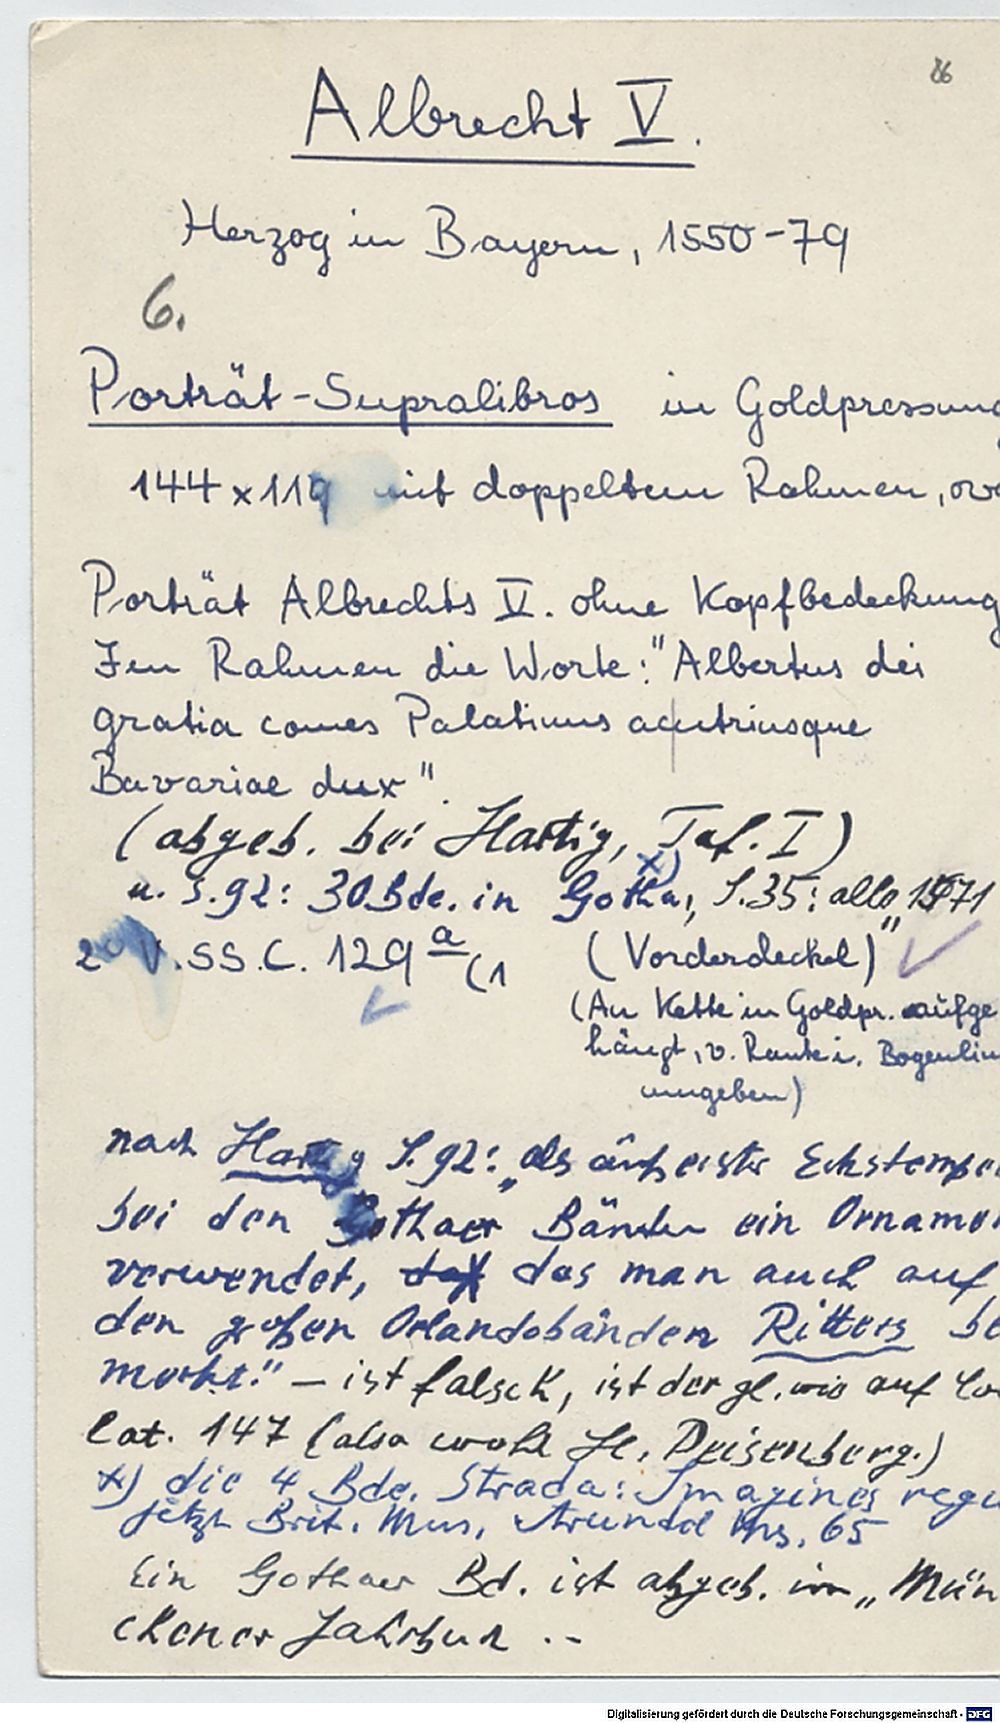 86
Albrecht V.
Herzog in Bayern, 1550-79
6.
Porträt-Supralibros in Goldpressung
144 x 119 mit doppeltem Rahmen, ova
Porträt Albrechts V. ohne Kopfbedeckung
Im Rahmen die Worte: "Albertus dei
gratia comes Palatinus ac utriusque
Bavariae dux".
(abgeb. bei Hartig, Taf. I)
u. S. 92: 30 Bde. in Gotha, x) S. 35: alle 1571
2° V. SS. C. 129 a (1 (Vorderdeckel)"
(An Kette in Goldpr. aufge
hängt, v. Rauten i. Bogenlin
umgeben)
nach Hartig S. 92: "als äußerster Eckstempel
bei den Gothaer Bänden ein Ornament
verwendet, das man auch auf
den großen Orlandobänden Ritters be
merkt." - ist falsch, ist der gl. wie auf Cod
lat. 147 (also wohl H. Deisenberg.)
x) die 4 Bde. Strada: Imagines regu
jetzt Brit. Mus. Arundel Ms. 65
Ein Gothaer Bd. ist abgeb. im "Mün
chener Jahrbuch ..
Digitalisierung gefördert durch die Deutsche Forschungsgemeinschaft - DFG